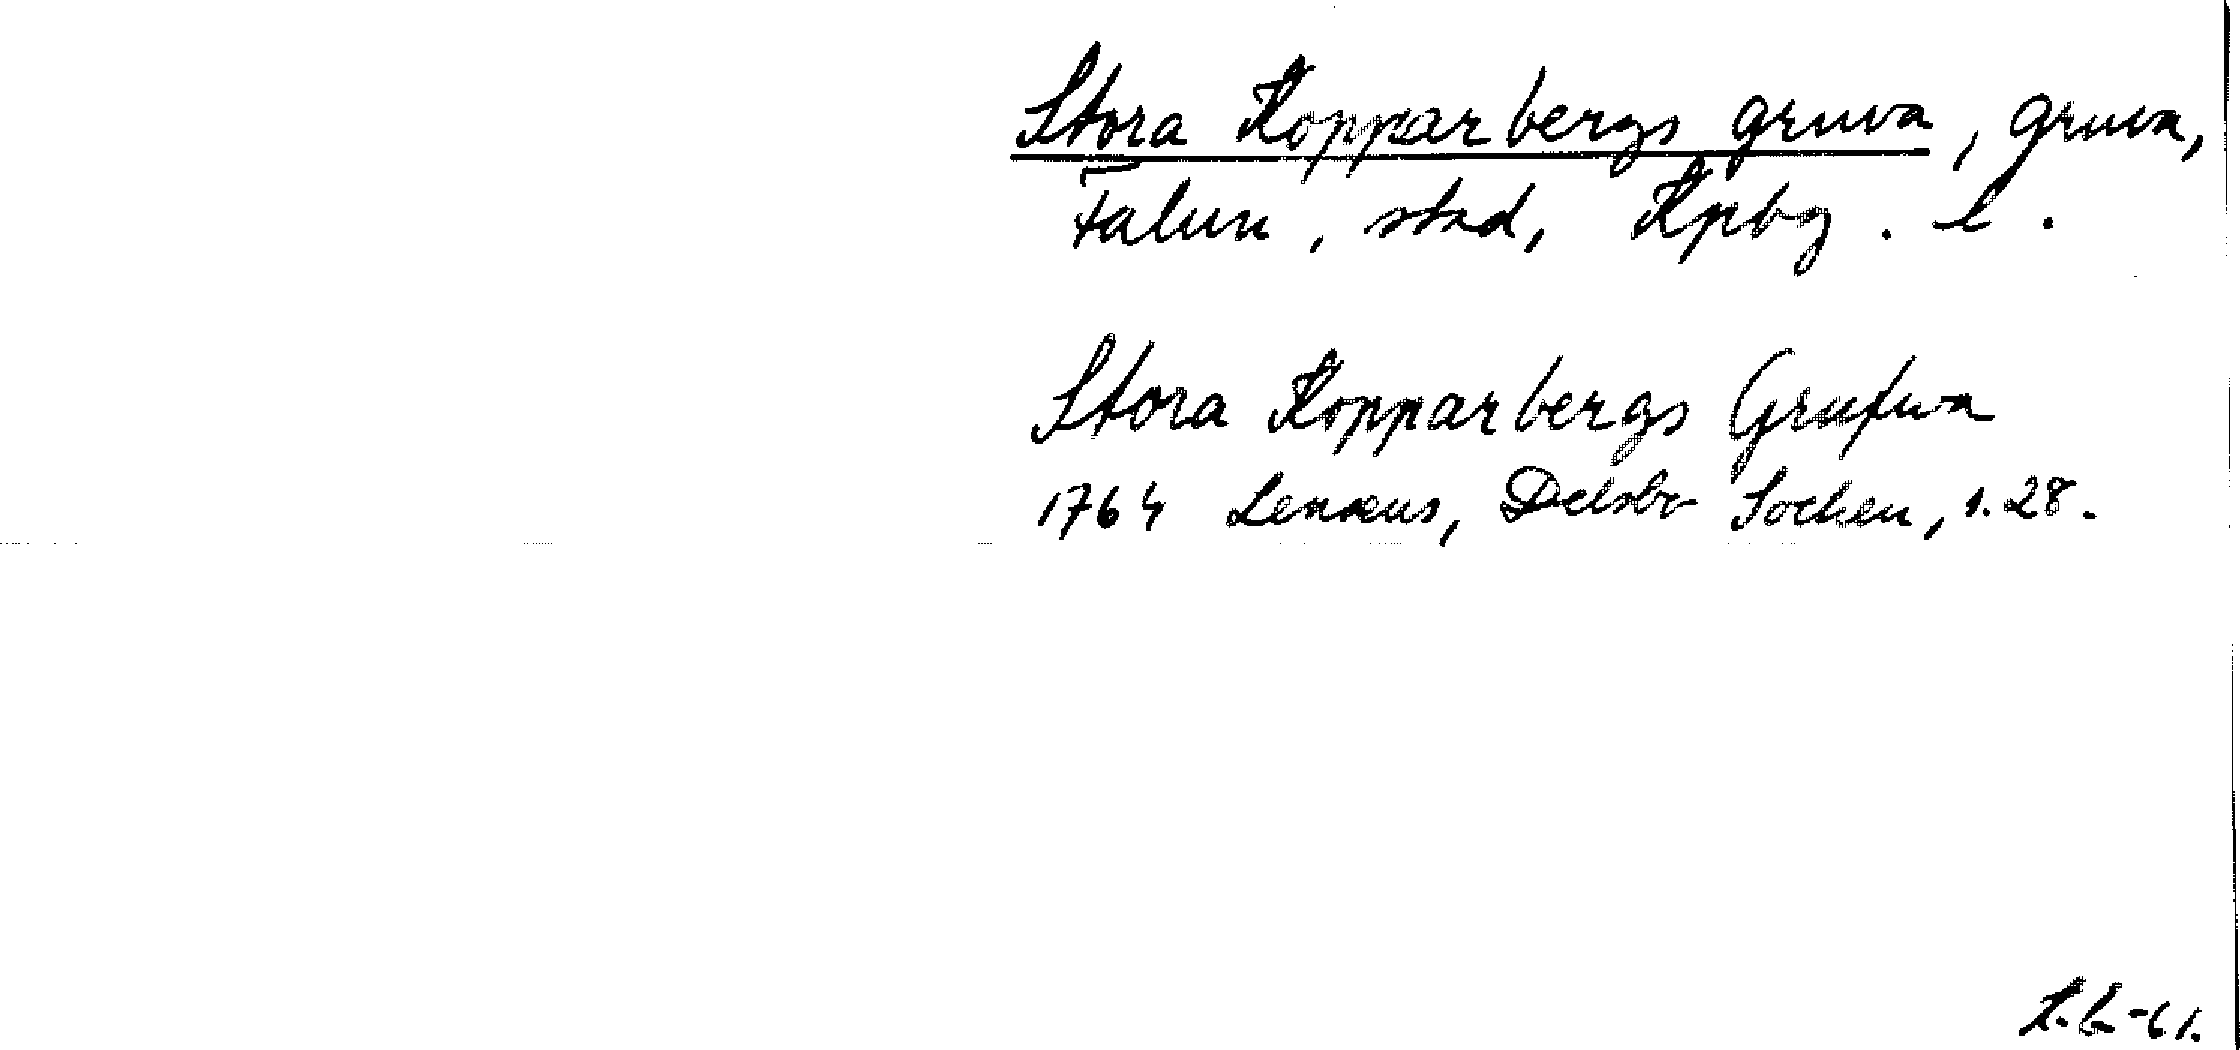 Stora Kopparbergs gruva, gruva,
Falun, stad, Kpbg. l.
Stora Kopparbergs Grufwa
1764 Lenæus, Delsbo Socken, s. 28.
L.L-61.